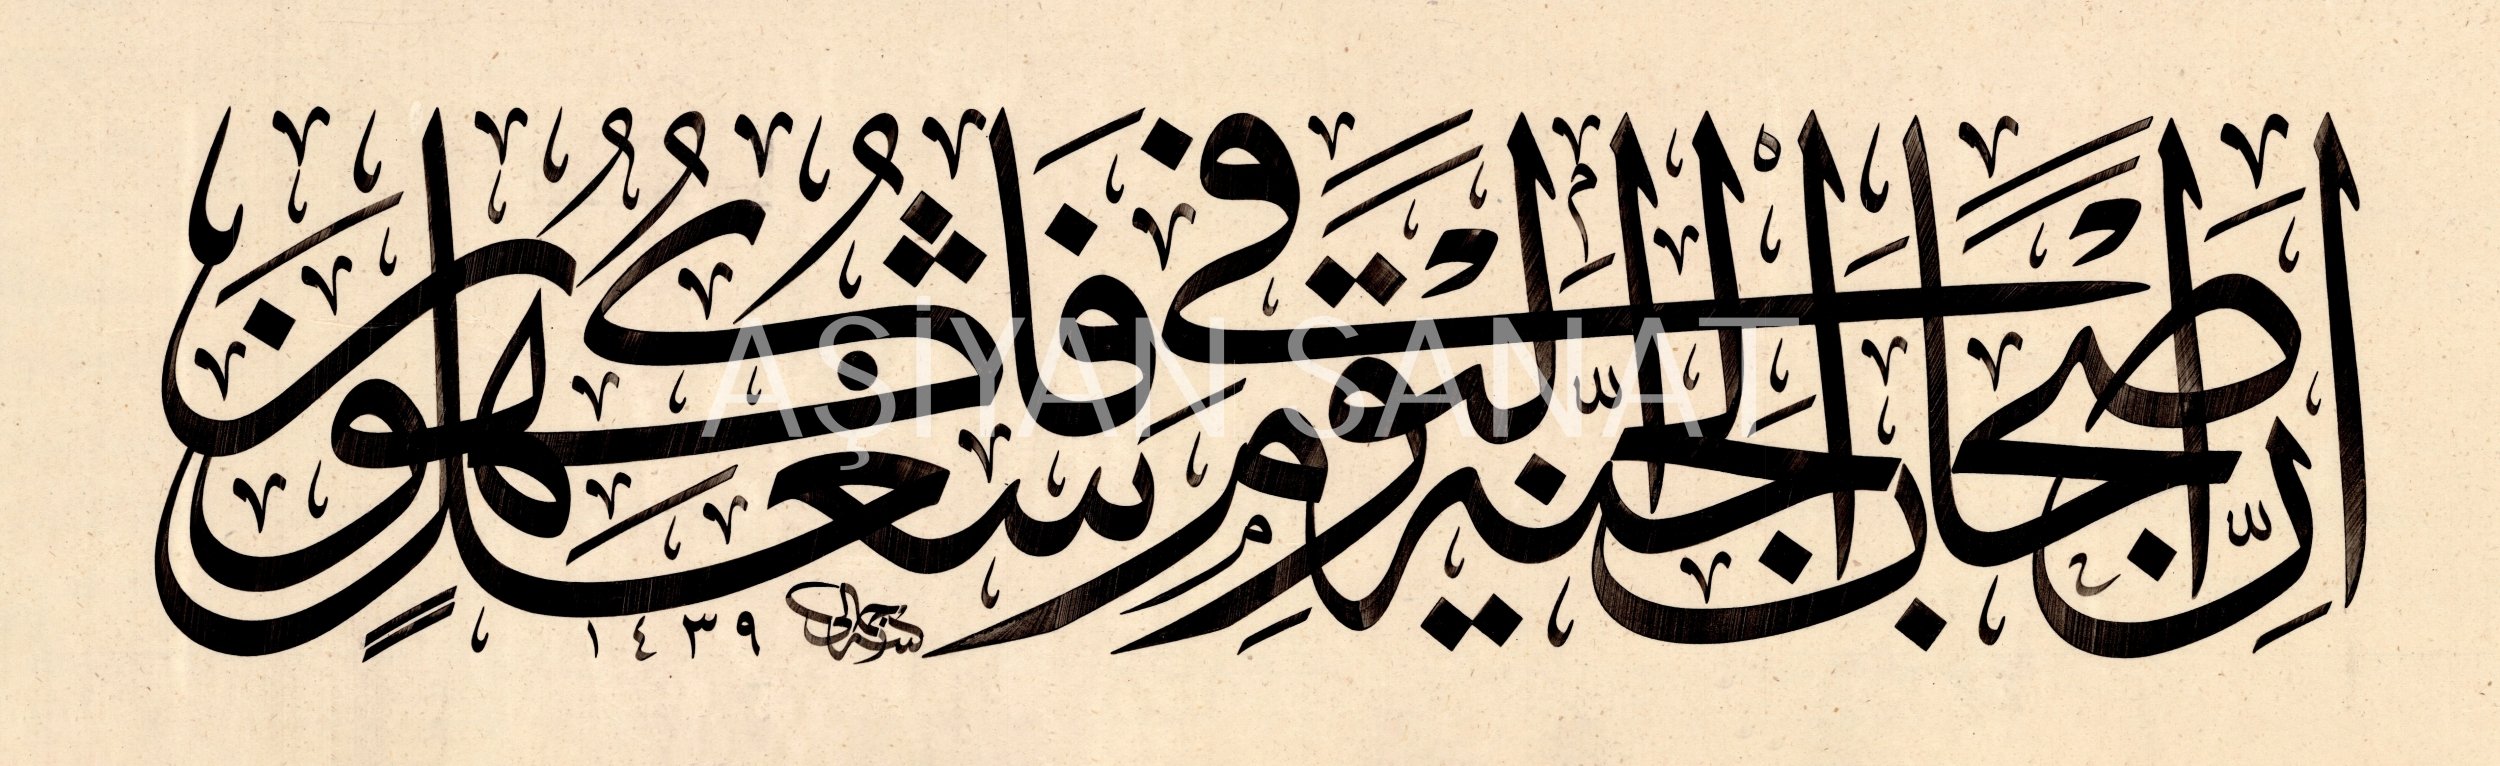 إِنَّ أَصْحَابَ الْجَنَّةِ الْيَوْمَ فِى شُغُلٍ فَاكِهُونَ
١٤٣٩
AŞİYAN SANAT